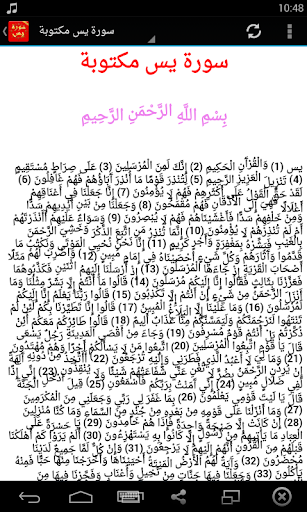 10:48
سورة يس مكتوبة
سورة يس مكتوبة
بِسْمِ اللَّهِ الرَّحْمَنِ الرَّحِيمِ
يس (1) وَالْقُرْآَنِ الْحَكِيمِ (2) إِنَّكَ لَمِنَ الْمُرْسَلِينَ (3) عَلَى صِرَاطٍ مُسْتَقِيمٍ
(4) تَنْزِيلَ الْعَزِيزِ الرَّحِيمِ (5) لِتُنْذِرَ قَوْمًا مَا أُنْذِرَ آَبَاؤُهُمْ فَهُمْ غَافِلُونَ (6)
لَقَدْ حَقَّ الْقَوْلُ عَلَى أَكْثَرِهِمْ فَهُمْ لَا يُؤْمِنُونَ (7) إِنَّا جَعَلْنَا فِي أَعْنَاقِهِمْ
أَغْلَالًا فَهِيَ إِلَى الْأَذْقَانِ فَهُمْ مُقْمَحُونَ (8) وَجَعَلْنَا مِنْ بَيْنِ أَيْدِيهِمْ سَدًّا
وَمِنْ خَلْفِهِمْ سَدًّا فَأَغْشَيْنَاهُمْ فَهُمْ لَا يُبْصِرُونَ (9) وَسَوَاءٌ عَلَيْهِمْ أَأَنْذَرْتَهُمْ
أَمْ لَمْ تُنْذِرْهُمْ لَا يُؤْمِنُونَ (10) إِنَّمَا تُنْذِرُ مَنِ اتَّبَعَ الذِّكْرَ وَخَشِيَ الرَّحْمَنَ
بِالْغَيْبِ فَبَشِّرْهُ بِمَغْفِرَةٍ وَأَجْرٍ كَرِيمٍ (11) إِنَّا نَحْنُ نُحْيِي الْمَوْتَى وَنَكْتُبُ مَا
قَدَّمُوا وَآَثَارَهُمْ وَكُلَّ شَيْءٍ أحْصَيْنَاهُ فِي إِمَامٍ مُبِينٍ (12) وَاضْرِبْ لَهُمْ مَثَلًا
أَصْحَابَ الْقَرْيَةِ إِذْ جَاءَهَا الْمُرْسَلُونَ (13) إِذْ أَرْسَلْنَا إِلَيْهِمُ اثْنَيْنِ فَكَذَّبُوهُمَا
فَعَزَّزْنَا بِثَالِثٍ فَقَالُوا إِنَّا إِلَيْكُمْ مُرْسَلُونَ (14) قَالُوا مَا أَنْتُمْ إِلَّا بَشَرٌ مِثْلُنَا وَمَا
أَنْزَلَ الرَّحْمَنُ مِنْ شَيْءٍ إِنْ أَنْتُمْ إِلَّا تَكْذِبُونَ (15) قَالُوا رَبُّنَا يَعْلَمُ إِنَّا إِلَيْكُمْ
لَمُرْسَلُونَ (16) وَمَا عَلَيْنَا إِلَّا الْبَلَاغُ الْمُبِينُ (17) قَالُوا إِنَّا تَطَيَّرْنَا بِكُمْ لَئِنْ لَمْ
تَنْتَهُوا لَنَرْجُمَنَّكُمْ وَلَيَمَسَّنَّكُمْ مِنَّا عَذَابٌ أَلِيمٌ (18) قَالُوا طَائِرُكُمْ مَعَكُمْ أَئِنْ
ذُكِّرْتُمْ بَلْ أَنْتُمْ قَوْمٌ مُسْرِفُونَ (19) وَجَاءَ مِنْ أَقْصَى الْمَدِينَةِ رَجُلٌ يَسْعَى
قَالَ يَا قَوْمِ اتَّبِعُوا الْمُرْسَلِينَ (20) اتَّبِعُوا مَنْ لَا يَسْأَلُكُمْ أَجْرًا وَهُمْ مُهْتَدُونَ
(21) وَمَا لِيَ لَا أَعْبُدُ الَّذِي فَطَرَنِي وَإِلَيْهِ تُرْجَعُونَ (22) أَأَتَّخِذُ مِنْ دُونِهِ آَلِهَةً
إِنْ يُرِدْنِ الرَّحْمَنُ بِضُرٍّ لَا تُغْنِ عَنِّي شَفَاعَتُهُمْ شَيْئًا وَلَا يُنْقِذُونِ (23) إِنِّي إِذًا
لَفِي ضَلَالٍ مُبِينٍ (24) إِنِّي آَمَنْتُ بِرَبِّكُمْ فَاسْمَعُونِ (25) قِيلَ ادْخُلِ الْجَنَّةَ
قَالَ يَا لَيْتَ قَوْمِي يَعْلَمُونَ (26) بِمَا غَفَرَ لِي رَبِّي وَجَعَلَنِي مِنَ الْمُكْرَمِينَ
(27) وَمَا أَنْزَلْنَا عَلَى قَوْمِهِ مِنْ بَعْدِهِ مِنْ جُنْدٍ مِنَ السَّمَاءِ وَمَا كُنَّا مُنْزِلِينَ
(28) إِنْ كَانَتْ إِلَّا صَيْحَةً وَاحِدَةً فَإِذَا هُمْ خَامِدُونَ (29) يَا حَسْرَةً عَلَى
الْعِبَادِ مَا يَأْتِيهِمْ مِنْ رَسُولٍ إِلَّا كَانُوا بِهِ يَسْتَهْزِئُونَ (30) أَلَمْ يَرَوْا كَمْ أَهْلَكْنَا
قَبْلَهُمْ مِنَ الْقُرُونِ أَنَّهُمْ إِلَيْهِمْ لَا يَرْجِعُونَ (31) وَإِنْ كُلٌّ لَمَّا جَمِيعٌ لَدَيْنَا
مُحْضَرُونَ (32) وَآَيَةٌ لَهُمُ الْأَرْضُ الْمَيْتَةُ أَحْيَيْنَاهَا وَأَخْرَجْنَا مِنْهَا حَبًّا فَمِنْهُ
يَأْكُلُونَ (33) وَجَعَلْنَا فِيهَا جَنَّاتٍ مِنْ نَخِيلٍ وَأَعْنَابٍ وَفَجَّرْنَا فِيهَا مِنَ